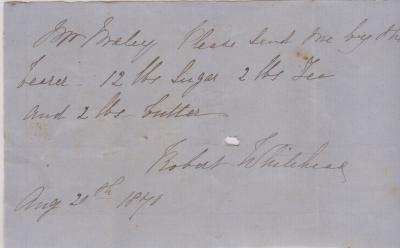 Mr Mosley Please Send me by the
bearer 12 lbs Sugar 2 lbs Tea
and 2 lbs butter
Robert Whitehead
Aug 20th 1870